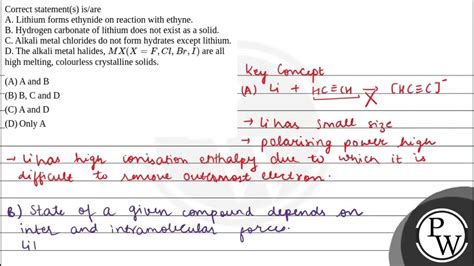 Correct statement(s) is/are
A. Lithium forms ethynide on reaction with ethyne.
B. Hydrogen carbonate of lithium does not exist as a solid.
C. Alkali metal chlorides do not form hydrates except lithium.
D. The alkali metal halides, MX(X = F, Cl, Br, I) are all
high melting, colourless crystalline solids.
(A) A and B
(B) B, C and D
(C) A and D
(D) Only A
Key Concept
(A) Li + HC≡CH → X [HC≡C]⁻
→ Li has small size
→ polarising power high
→ Li has high ionisation enthalpy due to which it is
difficult to remove outermost electron.
B) State of a given compound depends on
inter and intramolecular forces.
Li
PW